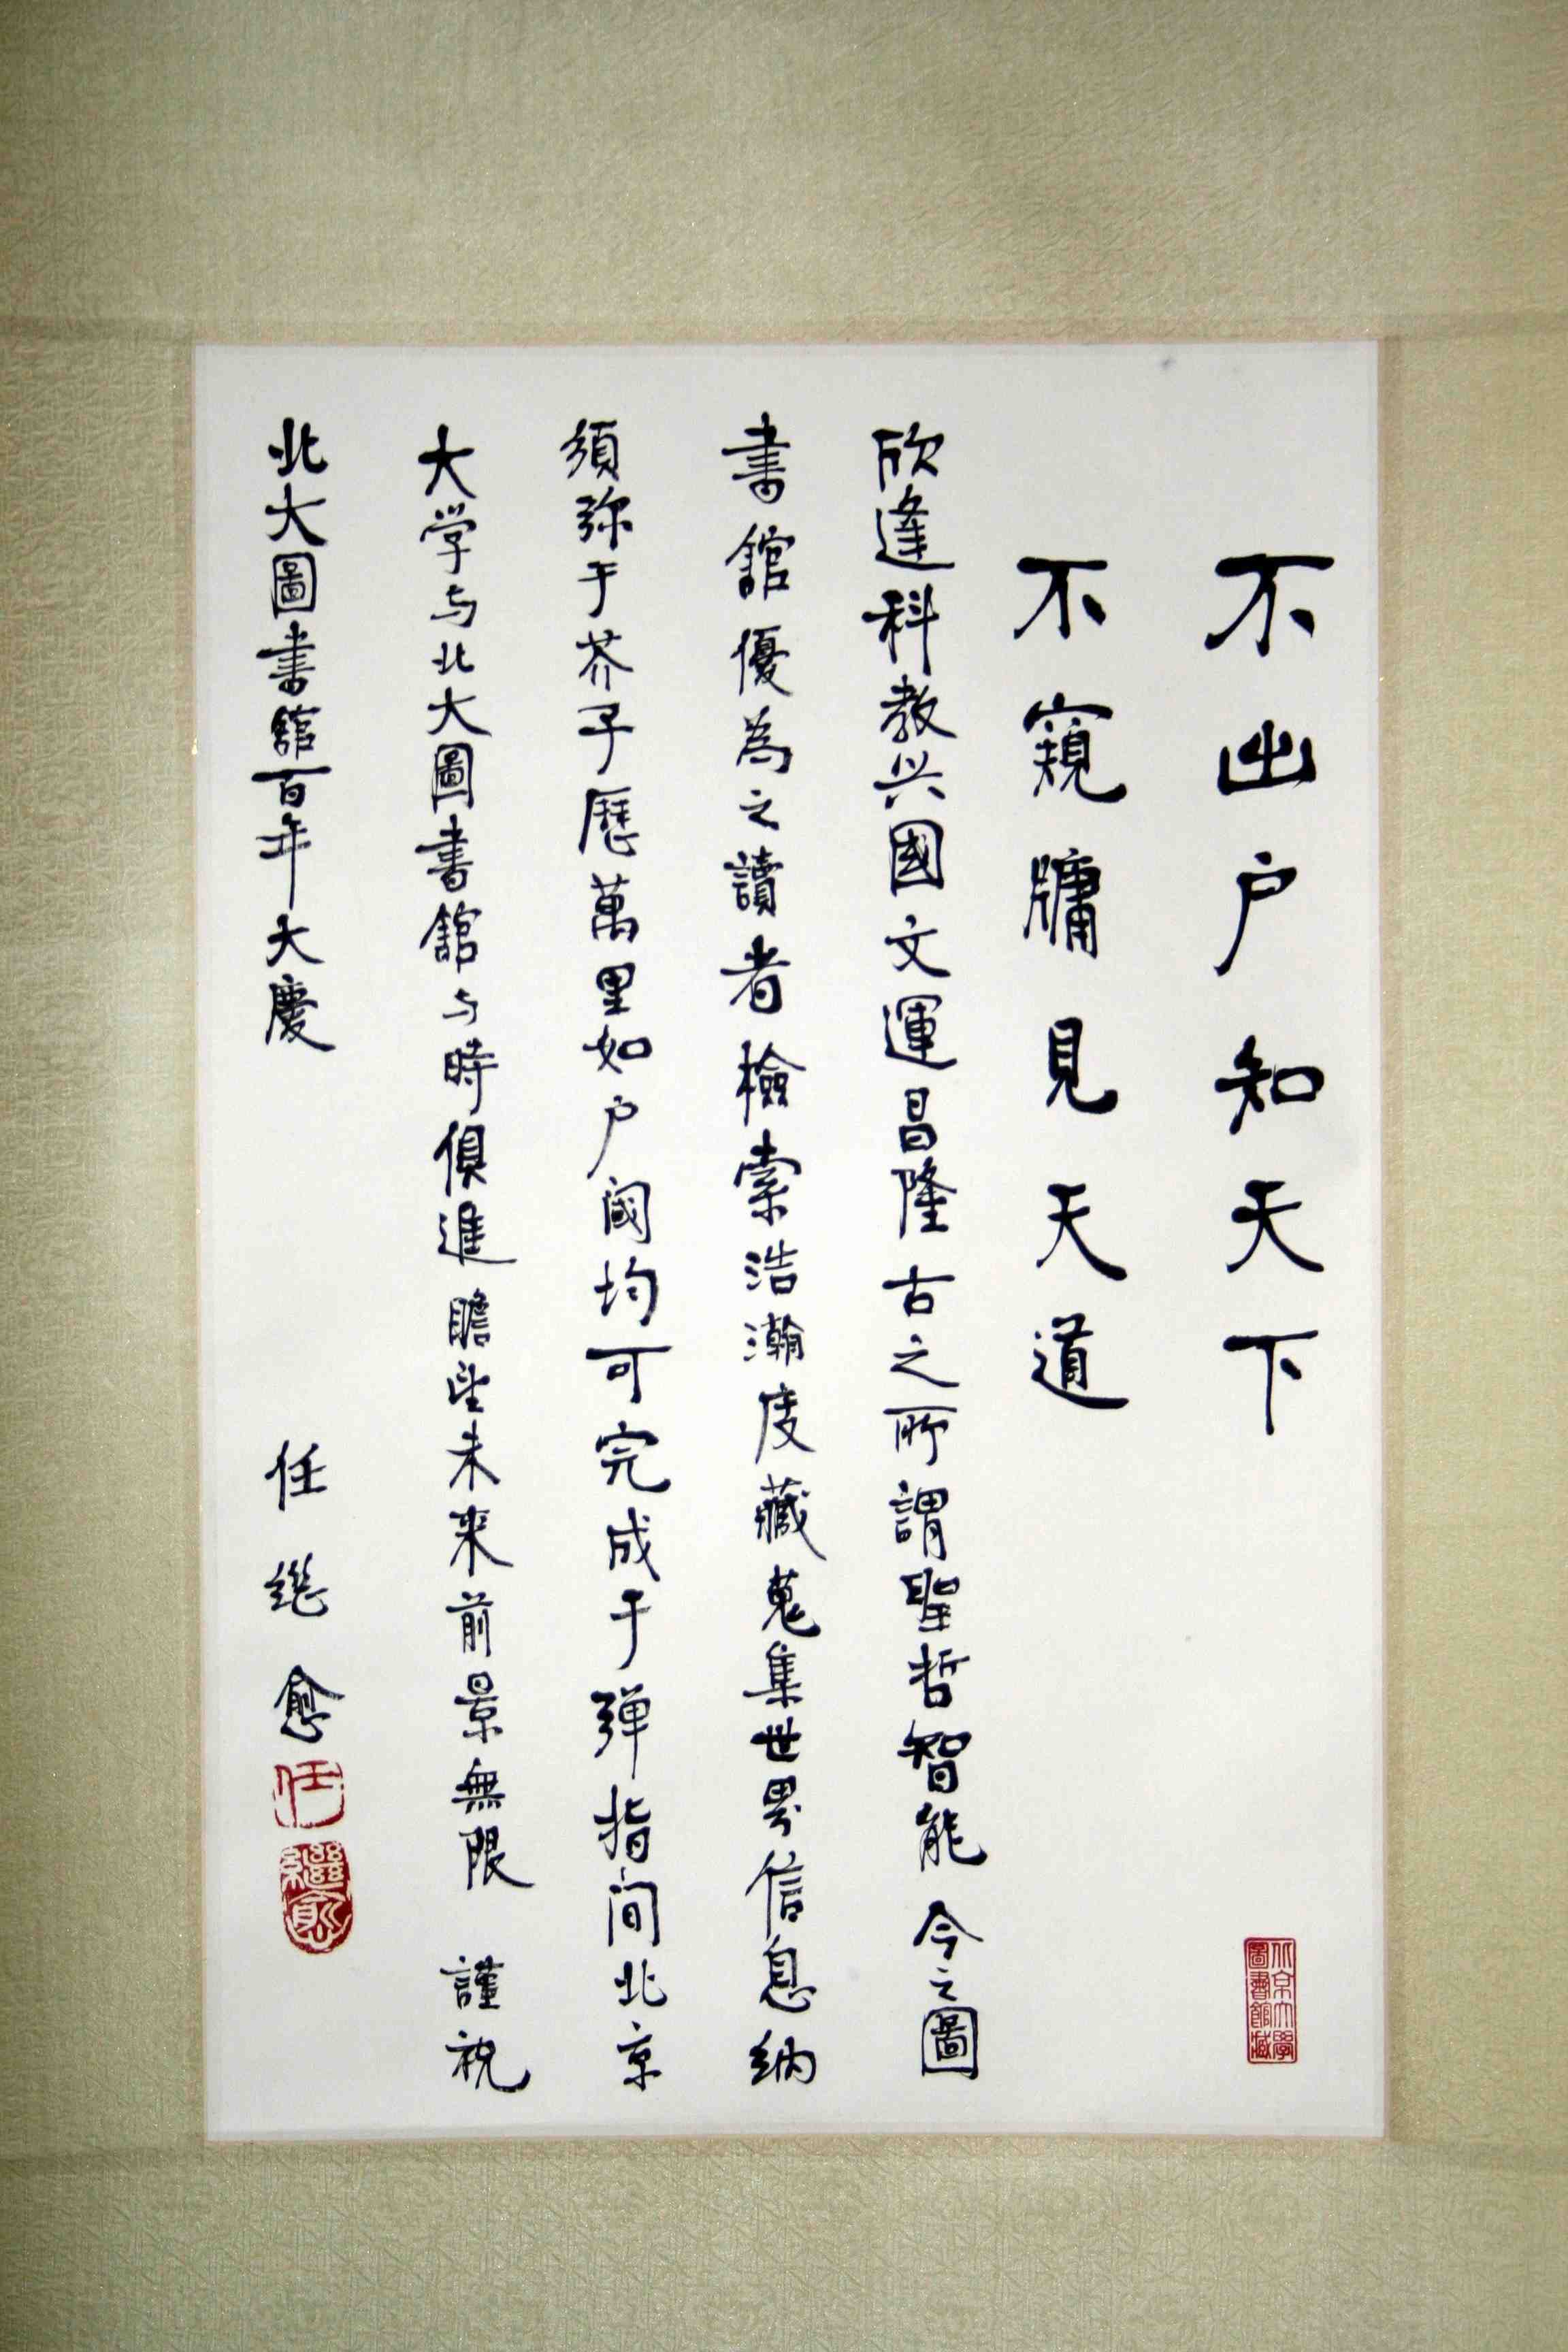 不出户知天下
不窺牖見天道
欣逢科教兴國文運昌隆古之所謂聖哲智能今之圖
書舘優為之讀者檢索浩瀚庋藏蒐集世界信息纳
須弥于芥子歷萬里如户阈均可完成于弹指间北京
大学与北大圖書舘与時俱進瞻望未来前景無限 謹祝
北大圖書舘百年大慶
任继愈
任
繼愈
北京大學
圖書館藏